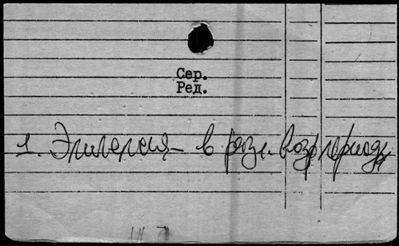 Сер.
Ред.
1. Эпилепсия – в разл. возр. периоды